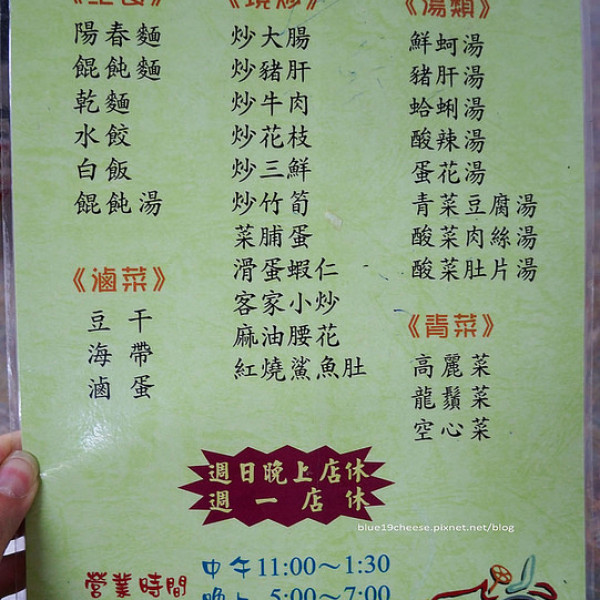 《主食》
陽春麵
餛飩麵
乾麵
水餃
白飯
餛飩湯
《滷菜》
豆干
海帶
滷蛋
《燒炒》
炒大腸
炒豬肝
炒牛肉
炒花枝
炒三鮮
炒竹筍
菜脯蛋
滑蛋蝦仁
客家小炒
麻油腰花
紅燒鯊魚肚
《湯類》
鮮蚵湯
豬肝湯
蛤蜊湯
酸辣湯
蛋花湯
青菜豆腐湯
酸菜肉絲湯
酸菜肚片湯
《青菜》
高麗菜
龍鬚菜
空心菜
週日晚上店休
週一店休
blue19cheese.pixnet.net/blog
營業時間
中午11:00～1:30
晚上 5:00～7:00